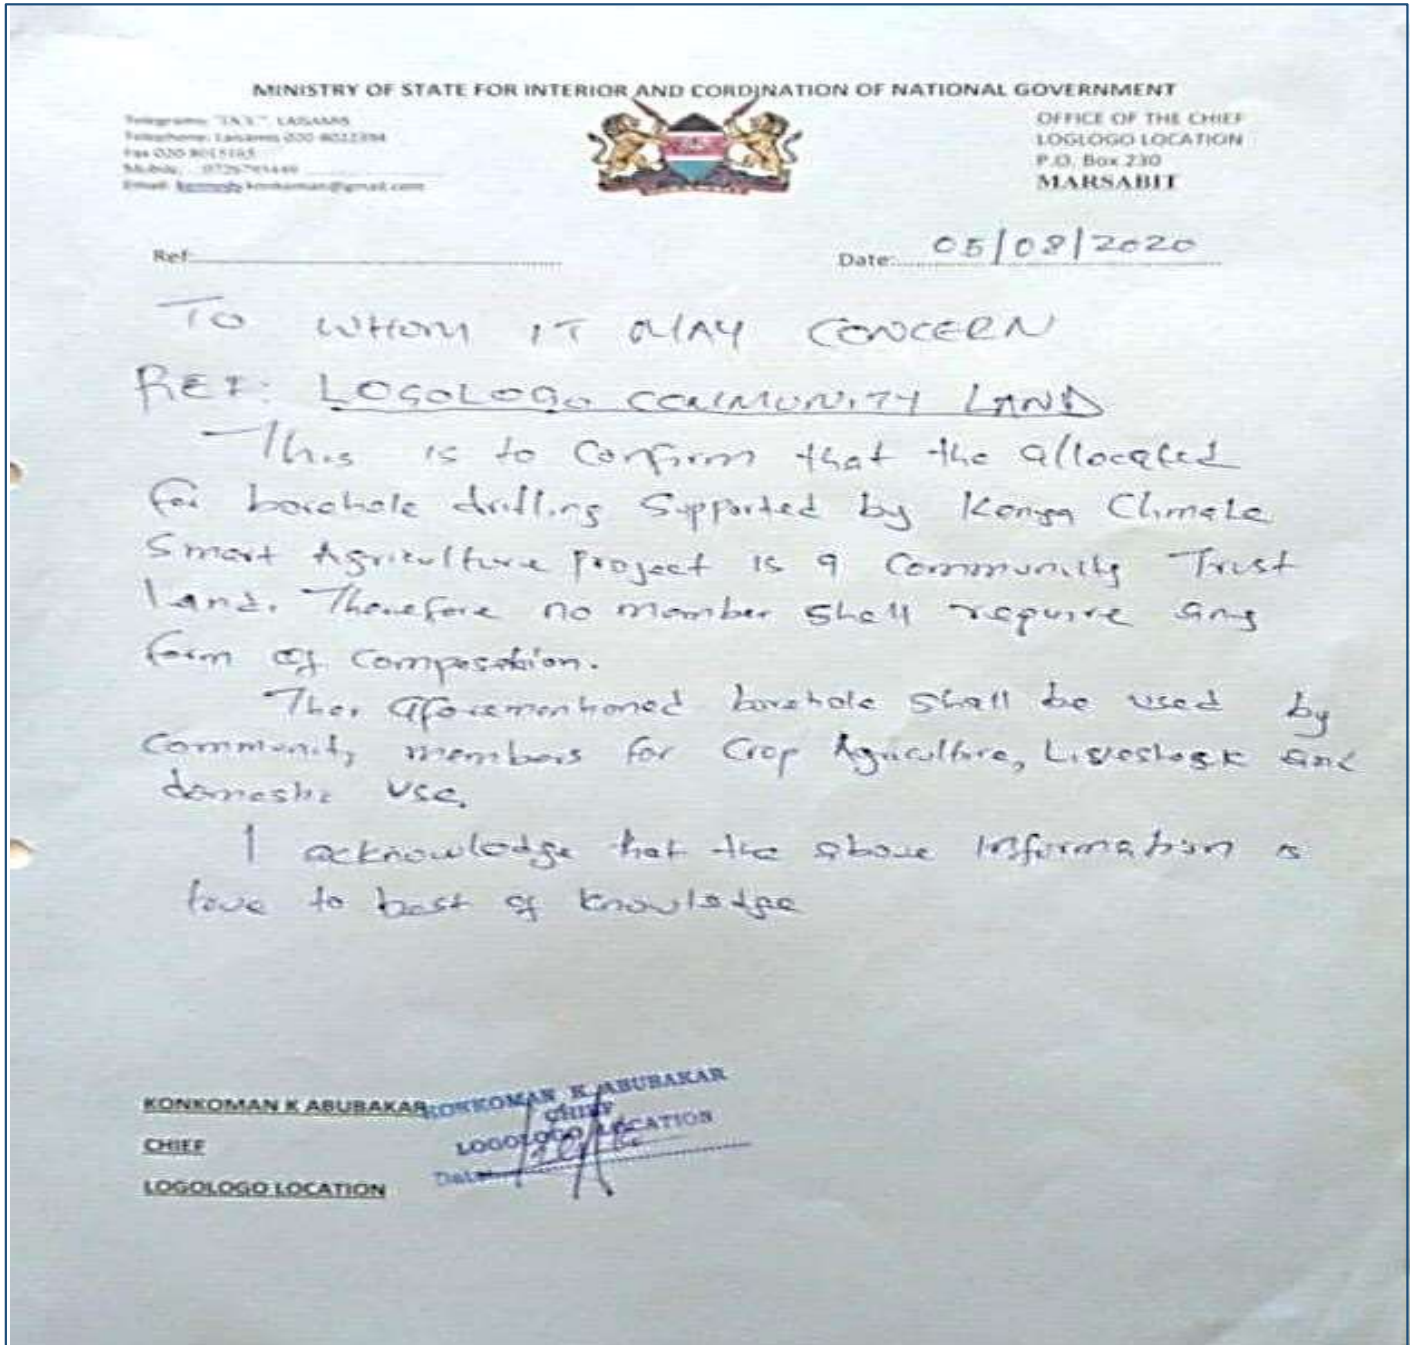 MINISTRY OF STATE FOR INTERIOR AND CORDINATION OF NATIONAL GOVERNMENT
Telegrams: LAISAMIS
Telephone: Laisamis 020
Fax 020
Mobile:
Email: konkoman@gmail.com
OFFICE OF THE CHIEF
LOGLOGO LOCATION
P.O. Box 230
MARSABIT
Ref:
Date: 05/08/2020
TO WHOM IT MAY CONCERN
REF: LOGOLOGO COMMUNITY LAND
This is to Confirm that the allocated
for borehole drilling Supported by Kenya Climate
Smart Agriculture Project is a Community Trust
land. Therefore no member shall require any
form of
The aforementioned borehole shall be used by
Community members for Crop Agriculture, Livestock and
domestic use.
I acknowledge that the above Information is
true to best of knowledge
KONKOMAN K ABUBAKAR
CHIEF
LOGOLOGO LOCATION
KONKOMAN K ABUBAKAR
CHIEF
LOGOLOGO LOCATION
Date: